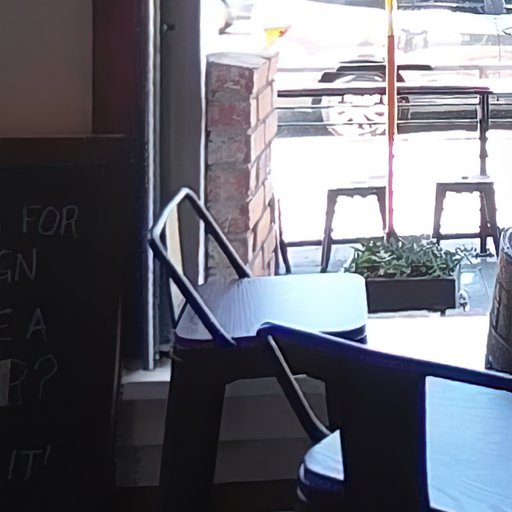 FOR
GN
E A
R?
IT!